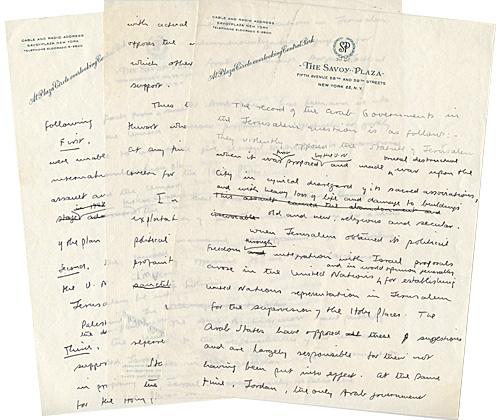 CABLE AND RADIO ADDRESS
SAVOYPLAZA NEW YORK
TELEPHONE ELDORADO 5-2600
At Plaza Circle overlooking
following
First,
were unable
internation
assault an
stages ad
of the plan
Second,
the U.
Jerusalem
Palest
Third,
suppor
in pr
for the Holy
with actual
oppose the
which other
support.
Thus t
throat who
at any tim
concern for
In
exploitat
political
propaint
sanctit
refere
St
the
CABLE AND RADIO ADDRESS
SAVOYPLAZA NEW YORK
TELEPHONE ELDORADO 5-2600
At Plaza Circle overlooking Central Park
SP
THE SAVOY-PLAZA
FIFTH AVENUE 58TH AND 59TH STREETS
NEW YORK 22, N.Y.
The record of the Arab Governments in
the Jerusalem question is as follows:-
They violently opposed the Statute of Jerusalem
when it was first proposed and made brutal destructive war upon the
City in cynical disregard of its sacred associations,
and with heavy loss of life and damage to buildings
This assault caused the abandonment and
old and new, religious and secular.
When Jerusalem obtained its political
freedom through integration with Israel proposals
arose in the United Nations and in world opinion generally for establishing
United Nations representation in Jerusalem
for the supervision of the Holy Places. The
Arab States have opposed all these suggestions
and are largely responsible for their not
having been put into effect. At the same
time, Jordan, the only Arab government